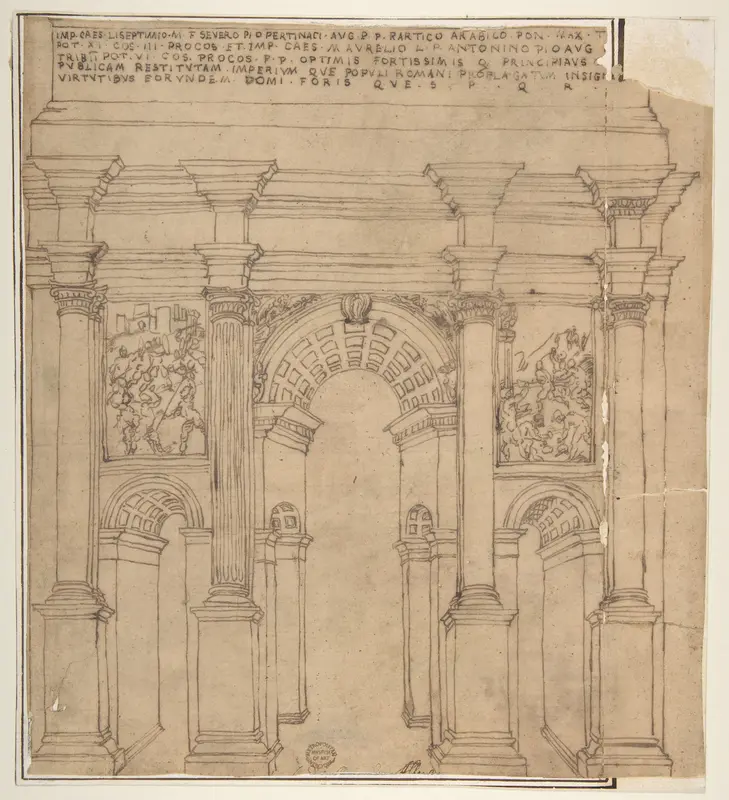 IMP. CAES. LI SEPTIMIO. M. F SEVERO PIO PERTINACI. AVG. P. P. PARTICO ARABILO PON. MAX. T
POT. XI COS. III. PROCOS. ET. IMP. CAES. M AVRELIO L. P. ANTONINO PIO AVG
TRIB. POT. VI COS. PROCOS. P. P. OPTIMIS FORTISSIMIS Q PRINCIPIAVS
PVBLICAM RESTITVTAM. IMPERIVM QVE POPVLI ROMANI PROPLAGATVM INSIGI
VIRTVTIBVS EORVNDEM. DOMI. FORIS QVE. S. P. Q R
METROPOLITAN
MUSEUM
OF ART